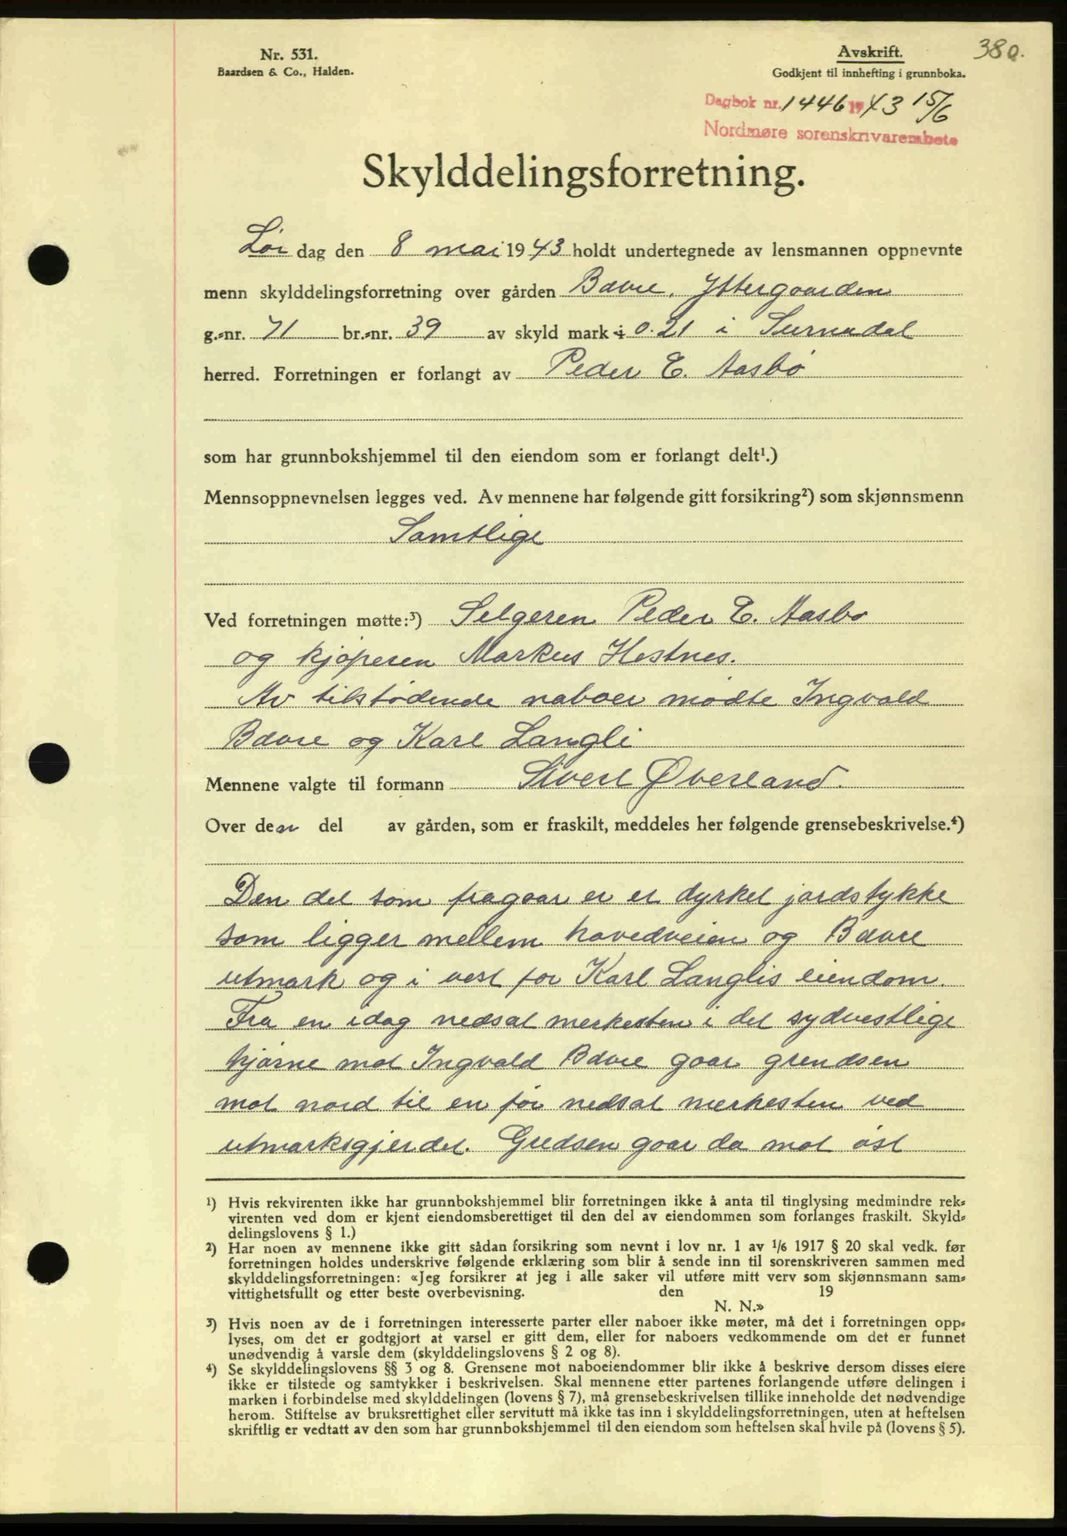 380.
Nr. 531.
Baardsen & Co., Halden.
Avskrift.
Godkjent til innhefting i grunnboka.
Dagbok nr. 1446 1943 15/6
Nordmøre sorenskrivarembete
Skylddelingsforretning.
Lør dag den 8 mai 1943 holdt undertegnede av lensmannen oppnevnte
menn skylddelingsforretning over gården Bøvre, Yttergaarden
g.-nr. 71 br.-nr. 39 av skyld mark 0.21 i Surnadal
herred. Forretningen er forlangt av Peder E. Aasbø
som har grunnbokshjemmel til den eiendom som er forlangt delt¹.)
Mennsoppnevnelsen legges ved. Av mennene har følgende gitt forsikring²) som skjønnsmenn
Samtlige
Ved forretningen møtte:³) Selgeren Peder E. Aasbø
og kjøperen Markus Hestnes.
Av tilstødende naboer mødte Ingvald
Bøvre og Karl Langli
Mennene valgte til formann Sivert Øverland.
Over den del av gården, som er fraskilt, meddeles her følgende grensebeskrivelse.⁴)
Den del som fragaar er et dyrket jordstykke
som ligger mellem hovedveien og Bøvre
utmark og i vest for Karl Langlis eiendom.
Fra en idag nedsat merkesten i det sydvestlige
hjørne mot Ingvald Bøvre gaar grendsen
mot nord til en før nedsat merkesten ved
utmarksgjerdet. Gredsen gaar da mot øst
¹) Hvis rekvirenten ikke har grunnbokshjemmel blir forretningen ikke å anta til tinglysing medmindre rek-
virenten ved dom er kjent eiendomsberettiget til den del av eiendommen som forlanges fraskilt. Skyld-
delingslovens § 1.)
²) Har noen av mennene ikke gitt sådan forsikring som nevnt i lov nr. 1 av 1/6 1917 § 20 skal vedk. før
forretningen holdes underskrive følgende erklæring som blir å sende inn til sorenskriveren sammen med
skylddelingsforretningen: «Jeg forsikrer at jeg i alle saker vil utføre mitt verv som skjønnsmann sam-
vittighetsfullt og etter beste overbevisning. den 19
N. N.»
³) Hvis noen av de i forretningen interesserte parter eller naboer ikke møter, må det i forretningen opp-
lyses, om det er godtgjort at varsel er gitt dem, eller for naboers vedkommende om det er funnet
unødvendig å varsle dem (skylddelingslovens § 2 og 8).
⁴) Se skylddelingslovens §§ 3 og 8. Grensene mot naboeiendommer blir ikke å beskrive dersom disses eiere
ikke er tilstede og samtykker i beskrivelsen. Skal mennene etter partenes forlangende utføre delingen i
marken i forbindelse med skylddelingen (lovens § 7), må grensebeskrivelsen tillike inneholde det nødvendige
herom. Stiftelse av bruksrettighet eller servitutt må ikke tas inn i skylddelingsforretningen, uten at heftelsen
skriftlig er vedtatt av den som har grunnbokshjemmel til den eiendom som heftelsen skal hvile på (lovens § 5).